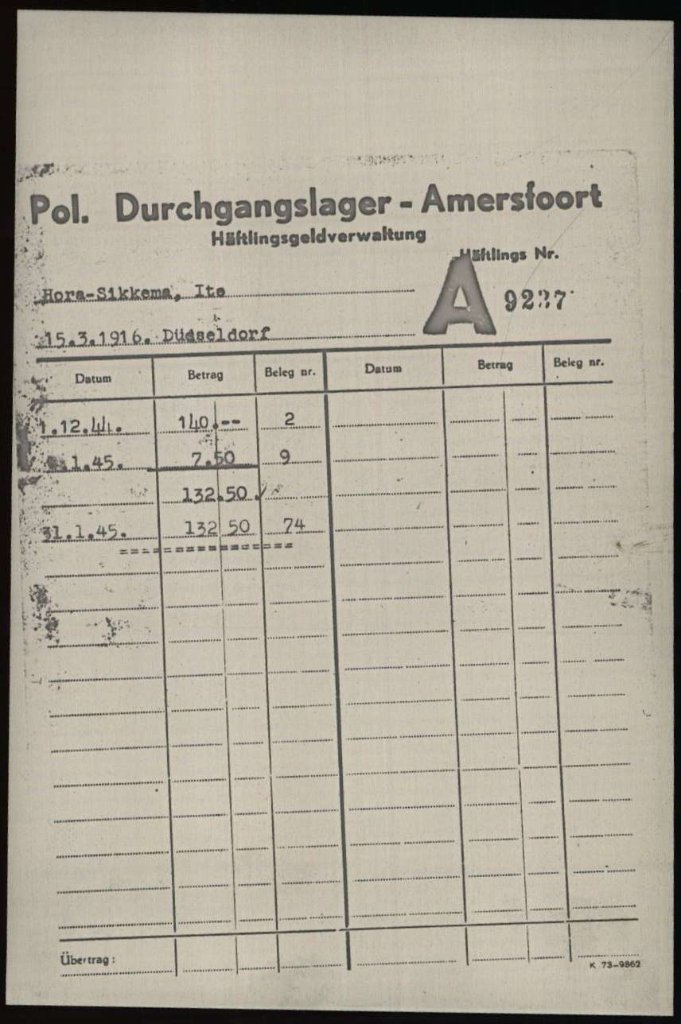 Pol. Durchgangslager - Amersfoort
Häftlingsgeldverwaltung
Häftlings Nr.
Hora-Sikkema, Ite
A 9237
15.3.1916. Düdseldorf
Datum Betrag Beleg nr. Datum Betrag Beleg nr.
1.12.44. 140.-- 2
1.45. 7.50 9
132.50
31.1.45. 132 50 74
==================
Übertrag:
K 73-9862